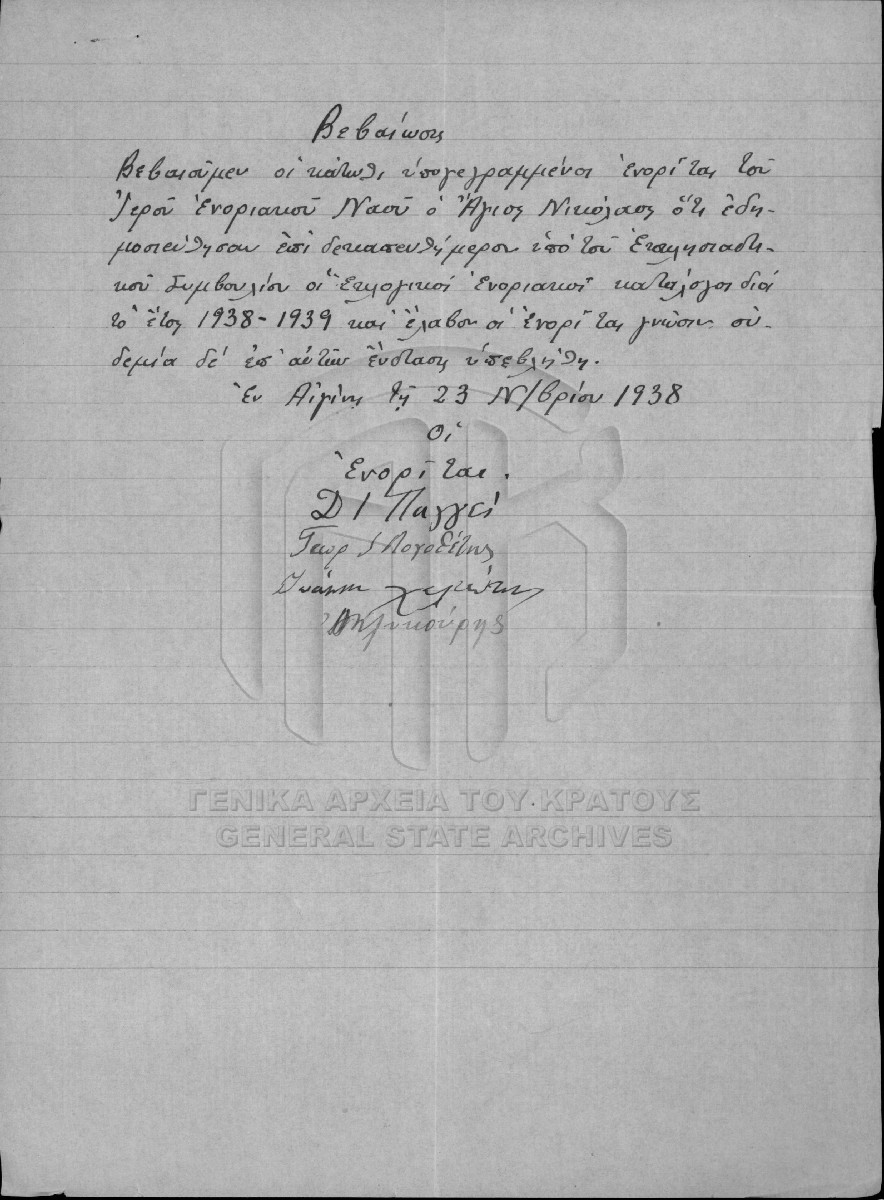 Βεβαίωσις
Βεβαιοῦμεν οἱ κάτωθι ὑπογεγραμμένοι ἐνορῖται τοῦ
Ἱεροῦ Ἐνοριακοῦ Ναοῦ ὁ Ἅγιος Νικόλαος ὅτι ἐδη-
μοσιεύθησαν ἐπὶ δεκαπενθήμερον ὑπὸ τοῦ Ἐκκλησιαστι-
κοῦ Συμβουλίου οἱ Ἐκλογικοί ἐνοριακοί κατάλογοι διά
τὸ ἔτος 1938-1939 καὶ ἔλαβον οἱ ἐνορῖται γνῶσιν οὐ-
δεμία δέ ἐπ' αὐτῶν ἔνστασις ὑπεβλήθη.
Ἐν Αἰγίνῃ τῇ 23 Ν/βρίου 1938
Οἱ
Ἐνορῖται.
Δ Ι
Γεωρ Ι Λογοθέτης
Ἰωάννη
ΓΕΝΙΚΑ ΑΡΧΕΙΑ ΤΟΥ ΚΡΑΤΟΥΣ
GENERAL STATE ARCHIVES